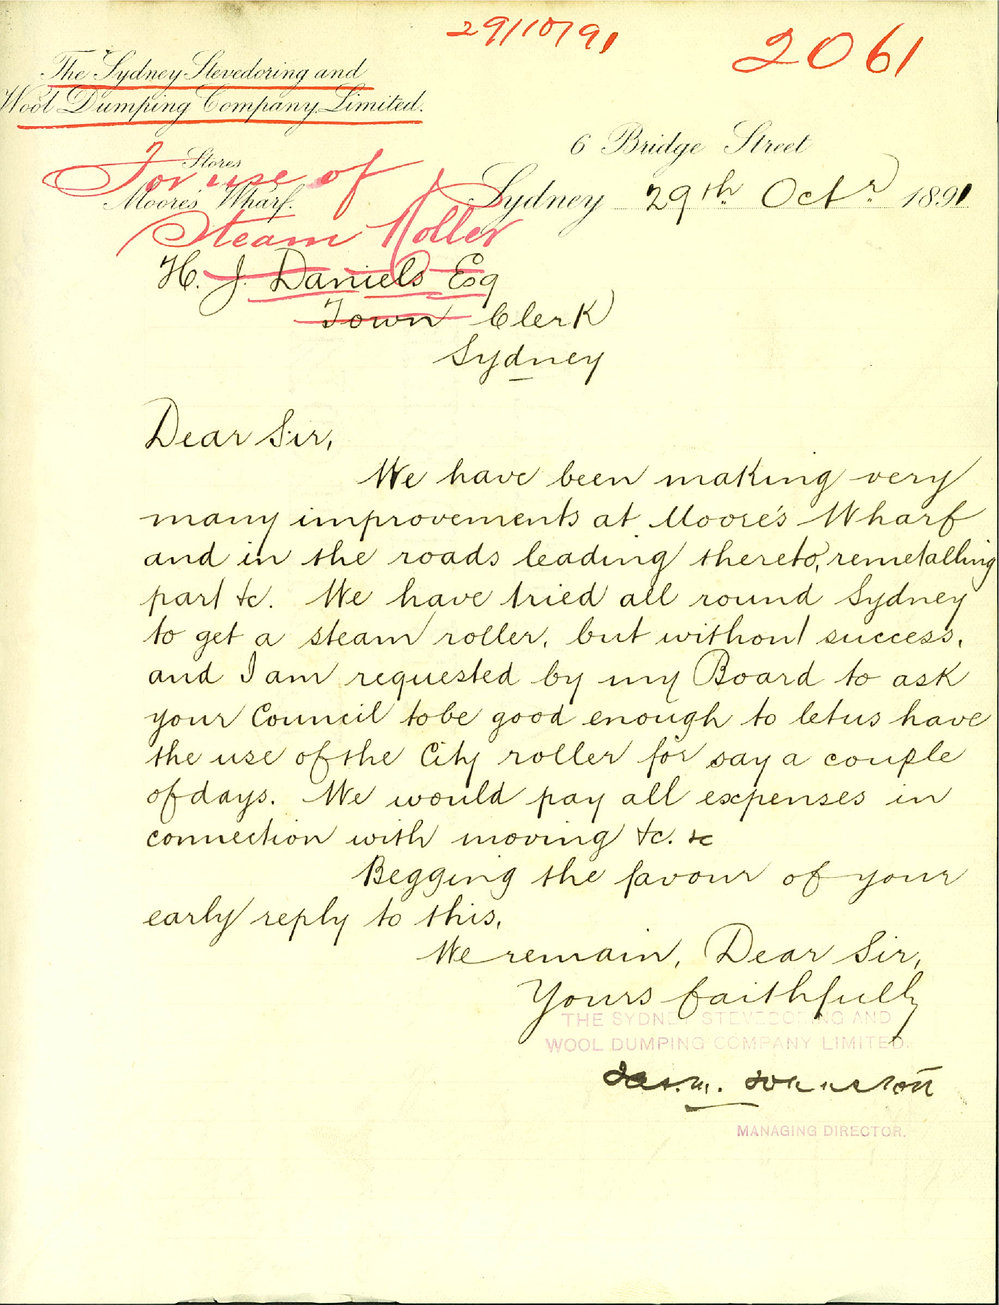 29/10/91
2061
The Sydney Stevedoring and
Wool Dumping Company Limited.
Stores
Moore's Wharf.
For use of
Steam Roller
6 Bridge Street
Sydney 29th Octr 1891
H. J. Daniels Esq
Town Clerk
Sydney
Dear Sir,
We have been making very
many improvements at Moore's Wharf
and in the roads leading thereto, remetalling
part &c. We have tried all round Sydney
to get a steam roller, but without success,
and I am requested by my Board to ask
your Council to be good enough to let us have
the use of the City roller for say a couple
of days. We would pay all expenses in
connection with moving &c. &c
Begging the favour of your
early reply to this,
We remain, Dear Sir,
Yours faithfully
THE SYDNEY STEVEDORING AND
WOOL DUMPING COMPANY LIMITED.
MANAGING DIRECTOR.